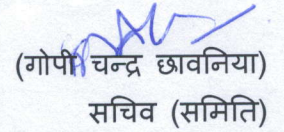 (गोपी चन्द्र छावनिया)
सचिव (समिति)